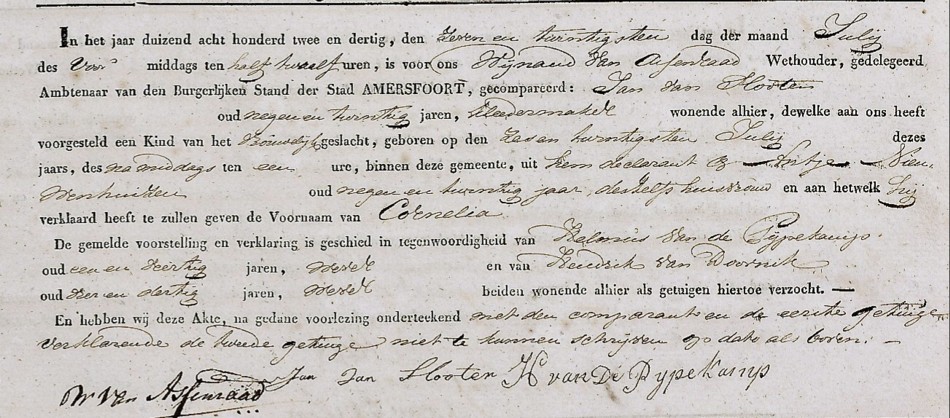 In het jaar duizend acht honderd twee en dertig, den zeven en twintigsten dag der maand Julij
des Voor middags ten half twaalf uren, is voor ons Wijnand van Assenraad Wethouder, gedelegeerd
Ambtenaar van den Burgerlijken Stand der Stad AMERSFOORT, gecompareerd: Jan van Slooten
oud negen en twintig jaren, kleedermaker wonende alhier, dewelke aan ons heeft
voorgesteld een Kind van het Vrouwelijk geslacht, geboren op den zeven twintigsten Julij dezes
jaars, des na middags ten een ure, binnen deze gemeente, uit hem declarant &
oud negen en twintig jaar, deszelfs huisvrouw en aan hetwelk hij
verklaard heeft te zullen geven de Voornaam van Cornelia.
De gemelde voorstelling en verklaring is geschied in tegenwoordigheid van Helmus van de Pijpekamp.
oud een en veertig jaren, wever en van Hendrik van Doornik
oud vier en dertig jaren, wever beiden wonende alhier als getuigen hiertoe verzocht. —
En hebben wij deze Akte, na gedane voorlezing onderteekend met den comparant en de eerste getuige,
verklarende de tweede getuige niet te kunnen schrijven op dato als boven. —
W van Assenraad Jan van Slooten H van De Pypekamp